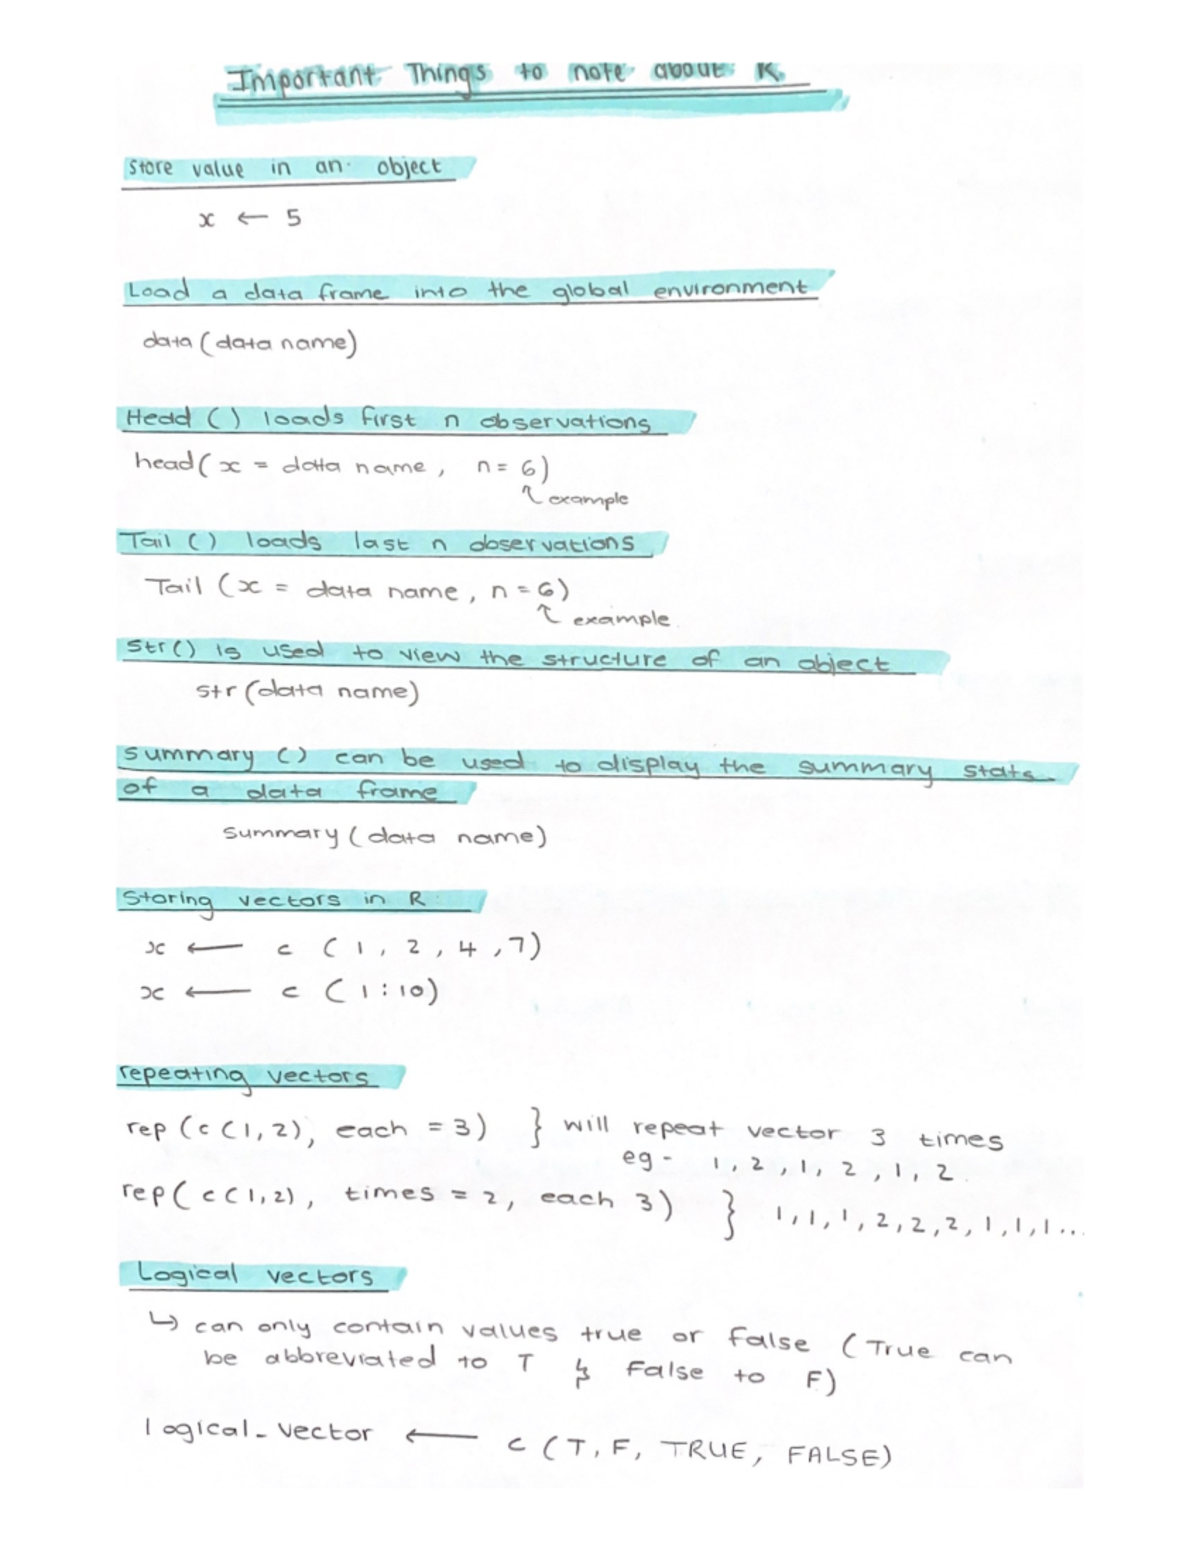 Important Things to note about R.
Store value in an object
x ← 5
Load a data frame into the global environment
data (data name)
Head () loads first n observations
head (x = data name, n = 6)
↖ example
Tail () loads last n observations
Tail (x = data name, n = 6)
↖ example
Str() is used to view the structure of an object
str (data name)
Summary () can be used to display the summary stats
of a data frame
summary (data name)
Storing vectors in R
x ← c (1, 2, 4, 7)
x ← c (1:10)
repeating vectors
rep (c (1,2), each = 3) } will repeat vector 3 times
eg - 1, 2, 1, 2, 1, 2
rep( c (1,2), times = 2, each 3) } 1,1,1,2,2,2,1,1,1...
Logical vectors
↳ can only contain values true or false (True can
be abbreviated to T & False to F)
logical_vector ← c (T, F, TRUE, FALSE)